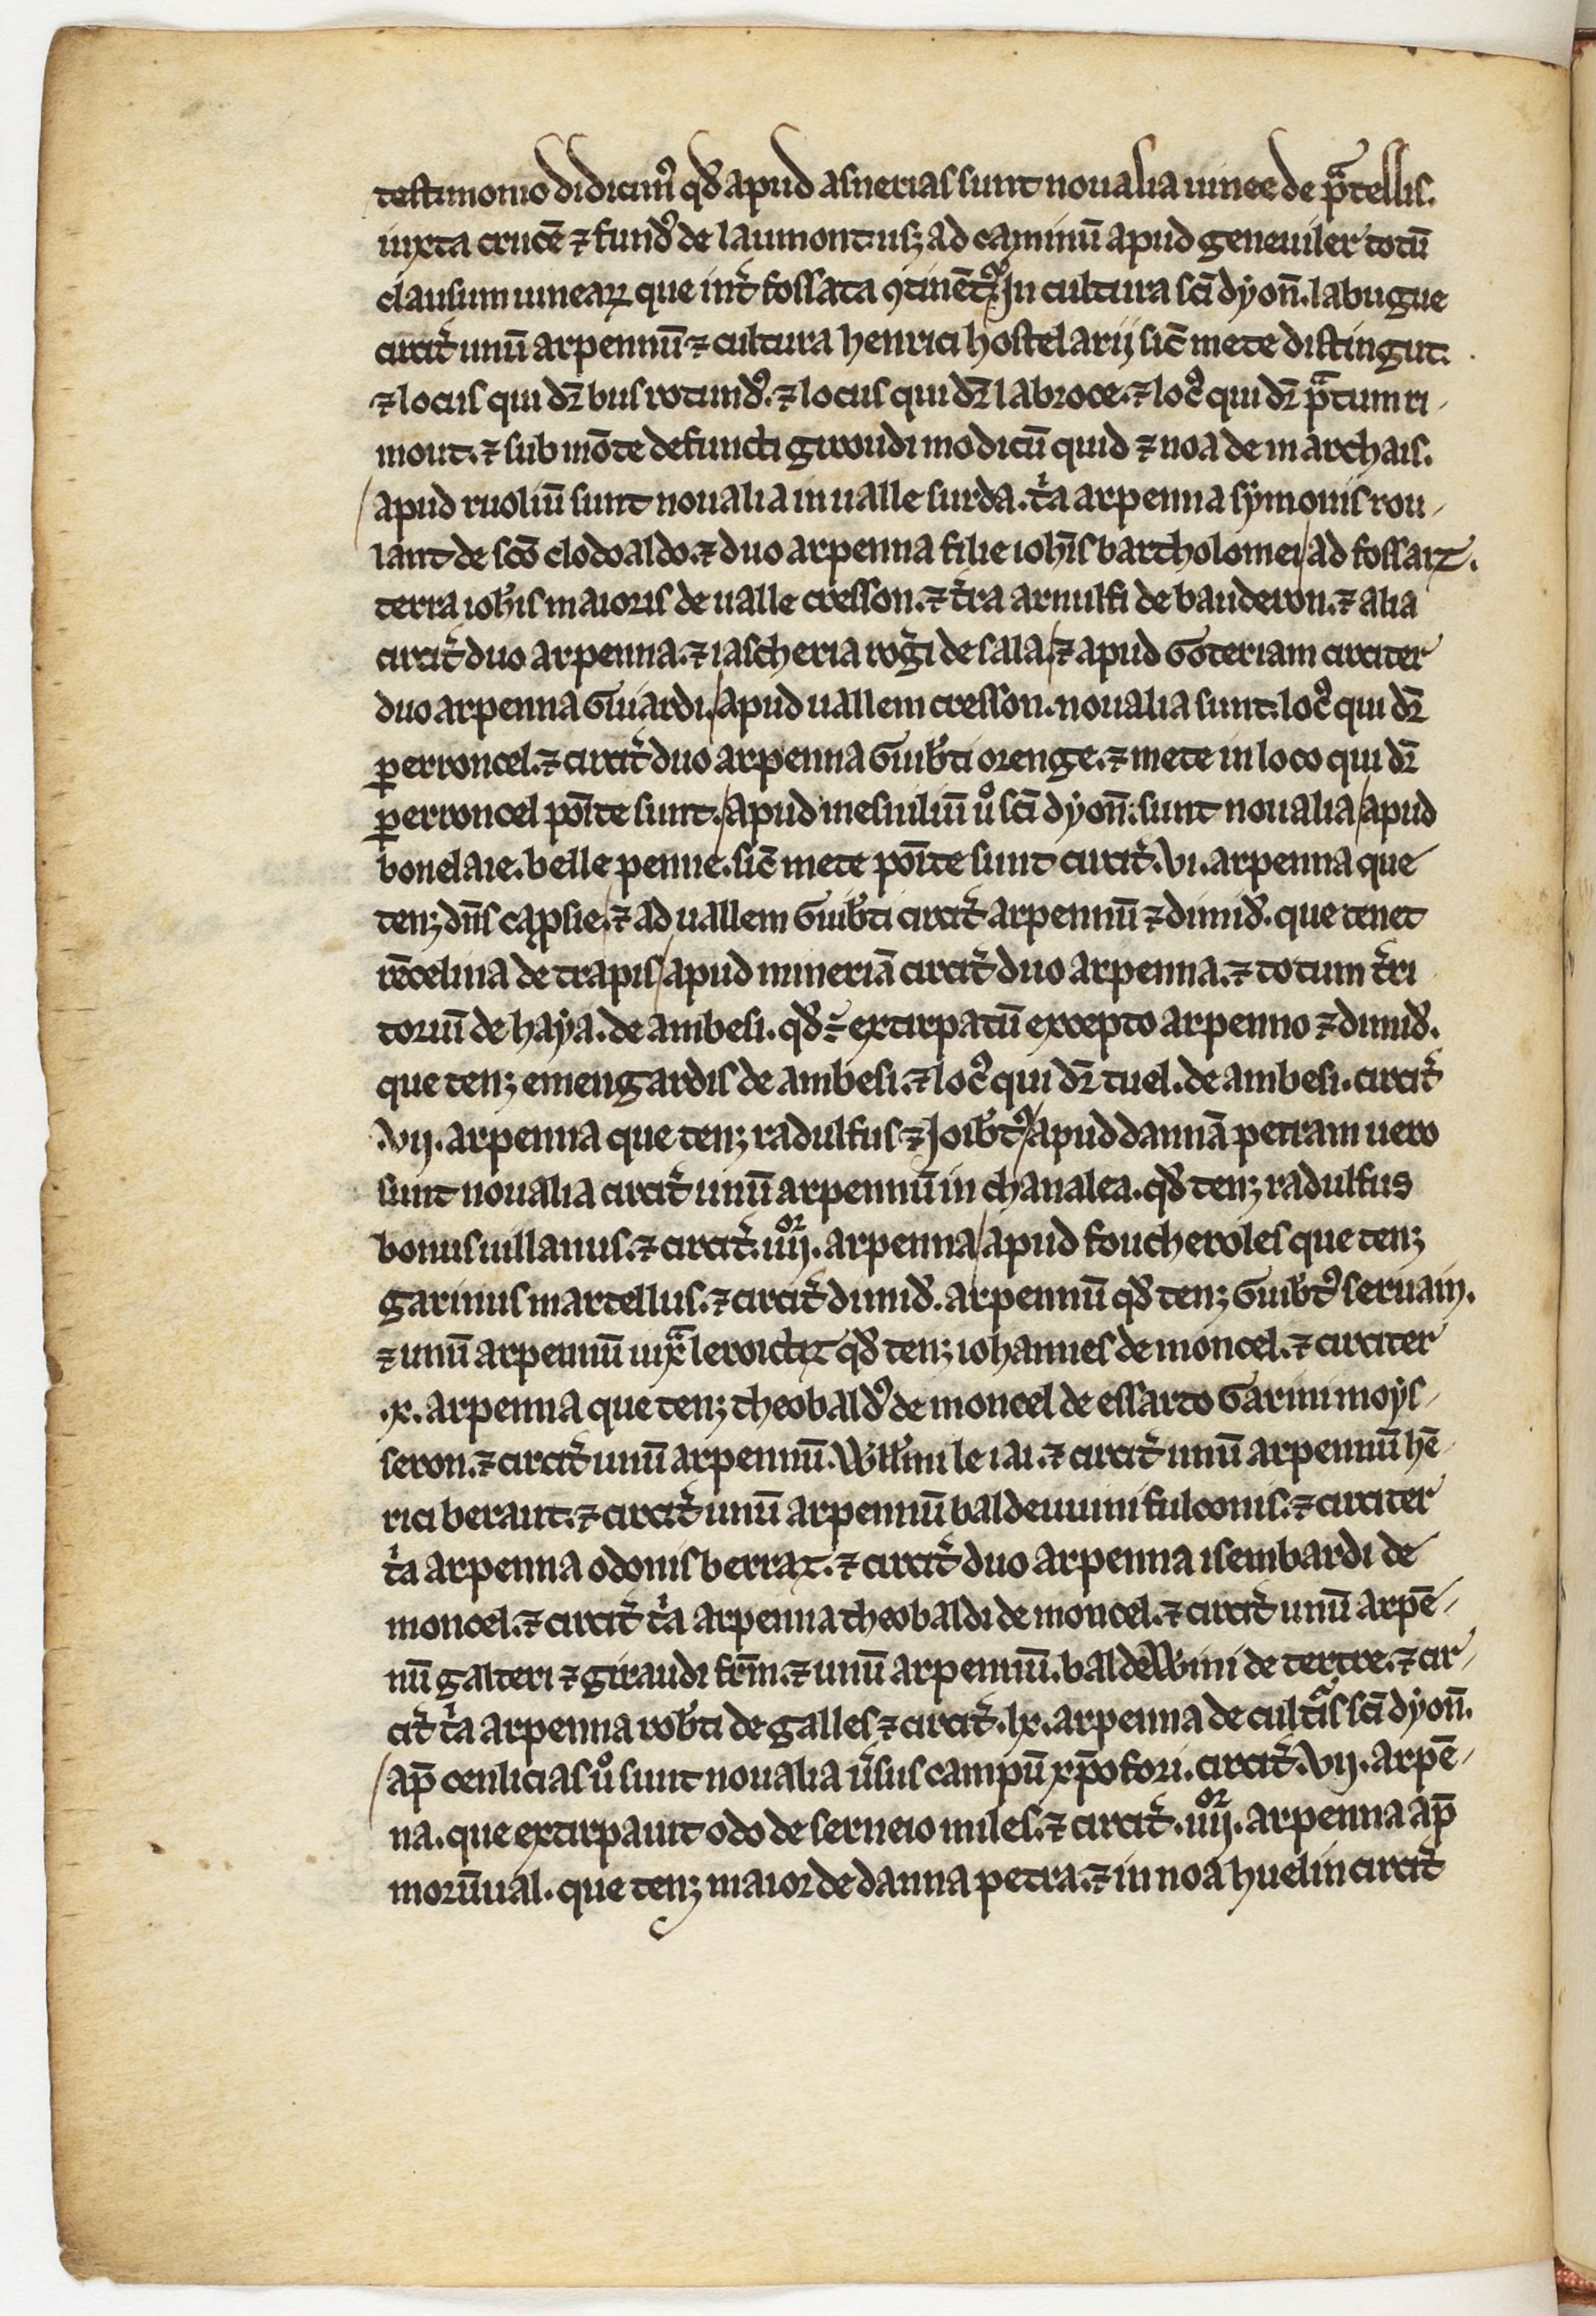 testimonio didicim᷒ qď apud asnerias sunt noualia uinee de p̃tellis.
iuxta crucē ⁊ fund᷒ de laumont. usꝫ ad caminū apud geneuiler totū
clausum uinearꝝ que int̾ fossata ꝯtinēt᷒. In cultura scī dyon̄. labugue
circit̾ unū arpennū ⁊ cultura henrici hostelarij sic̄ mete distingut.
⁊ locus qui dr̄ bus rotund᷒. ⁊ locus qui dr̄ labroce. ⁊ loc᷒ qui dr̄ p̃tum ri-
mout. ⁊ sub mōte defuncti giroudi modicū quid ⁊ noa de marchais.
apud ruoliū sunt noualia in ualle surda. t̾a arpenna symonis rou-
lant de scō clodoaldo. ⁊ duo arpenna filie ioh̄is bartholomei / ad fossaiꝫ.
terra ioh̄is maioris de ualle cresson. ⁊ t̾ra arnulfi de bauderon. ⁊ alia
circit̾ duo arpenna. ⁊ iascheria rog̾i de sala. / ⁊ apud Goteriam circiter
duo arpenna Guiardi. / apud uallem cresson. noualia sunt. loc᷒ qui dr̄
ꝑerroncel. ⁊ circit̾ duo arpenna Guib̾ti orenge. ⁊ mete in loco qui dr̄
ꝑerroncel po̅ite sunt. / apud mesniliū ů scī dyon̄. sunt noualia / apud
bonelaie. belle penne. sic̄ mete po̅ite sunt circit̾. vi. arpenna que
tenꝫ dn̄s capsie. / ⁊ ad uallem Guib̾ti circit̾ arpennū ⁊ dimid̾. que tenet
rēcelina de trapis / apud mineriā circit̾ duo arpenna. ⁊ totum t̾ri
toriū de haya. de ambesi. qď ÷ extirpatū excepto arpenno ⁊ dimid̾.
que tenꝫ emengardis de ambesi. ⁊ loc᷒ qui dr̄ tuel. de ambesi. circit̾
.vij. arpenna que tenꝫ radulfus ⁊ Joib̾t᷒ / apud dannā petram uero
sunt noualia circit̾ unū arpennū in chanalea. qď tenꝫ radulfus
bonus uillanus. ⁊ circit̾. iiij.ᵒʳ arpenna / apud foucheroles que tenꝫ
garinus martellus. ⁊ circit̾ dimid̾. arpennū qď tenꝫ Guib̾t᷒ seruain.
⁊ unū arpennū iux̃ leroictiꝫ qď tenꝫ iohannes de moncel. ⁊ circiter
.x. arpenna que tenꝫ theobald᷒ de moncel de essarto Garini moys-
seron. ⁊ circit̾ unū arpennū. Will̾mi le iai. ⁊ circit̾ unū arpennū hē
rici beraut. ⁊ circit̾ unū arpennū baldeuuini fulconis. ⁊ circiter
t̾a arpenna odonis berraꝫ. ⁊ circit̾ duo arpenna isembardi de
moncel. ⁊ circit̾ t̾a arpenna theobaldi de moncel. ⁊ circit̾ unū arpē-
nū galteri ⁊ giraudi fr̄m. ⁊ unū arpennū. baldewini de tertre. ⁊ cir-
cit̾ t̾a arpenna rob̾ti de galles ⁊ circit̾. lx. arpenna de cult̃is scī dyon̄.
ap̄ cenlicias ů sunt noualia u̾sus campū xp̄ofori. circit̾. vij. arpē-
na. que extirpauit odo de serneio miles. ⁊ circit̾. iiij.ᵒʳ arpenna ap̄
morūual. que tenꝫ maior de danna petra. ⁊ in noa huelin circit̾